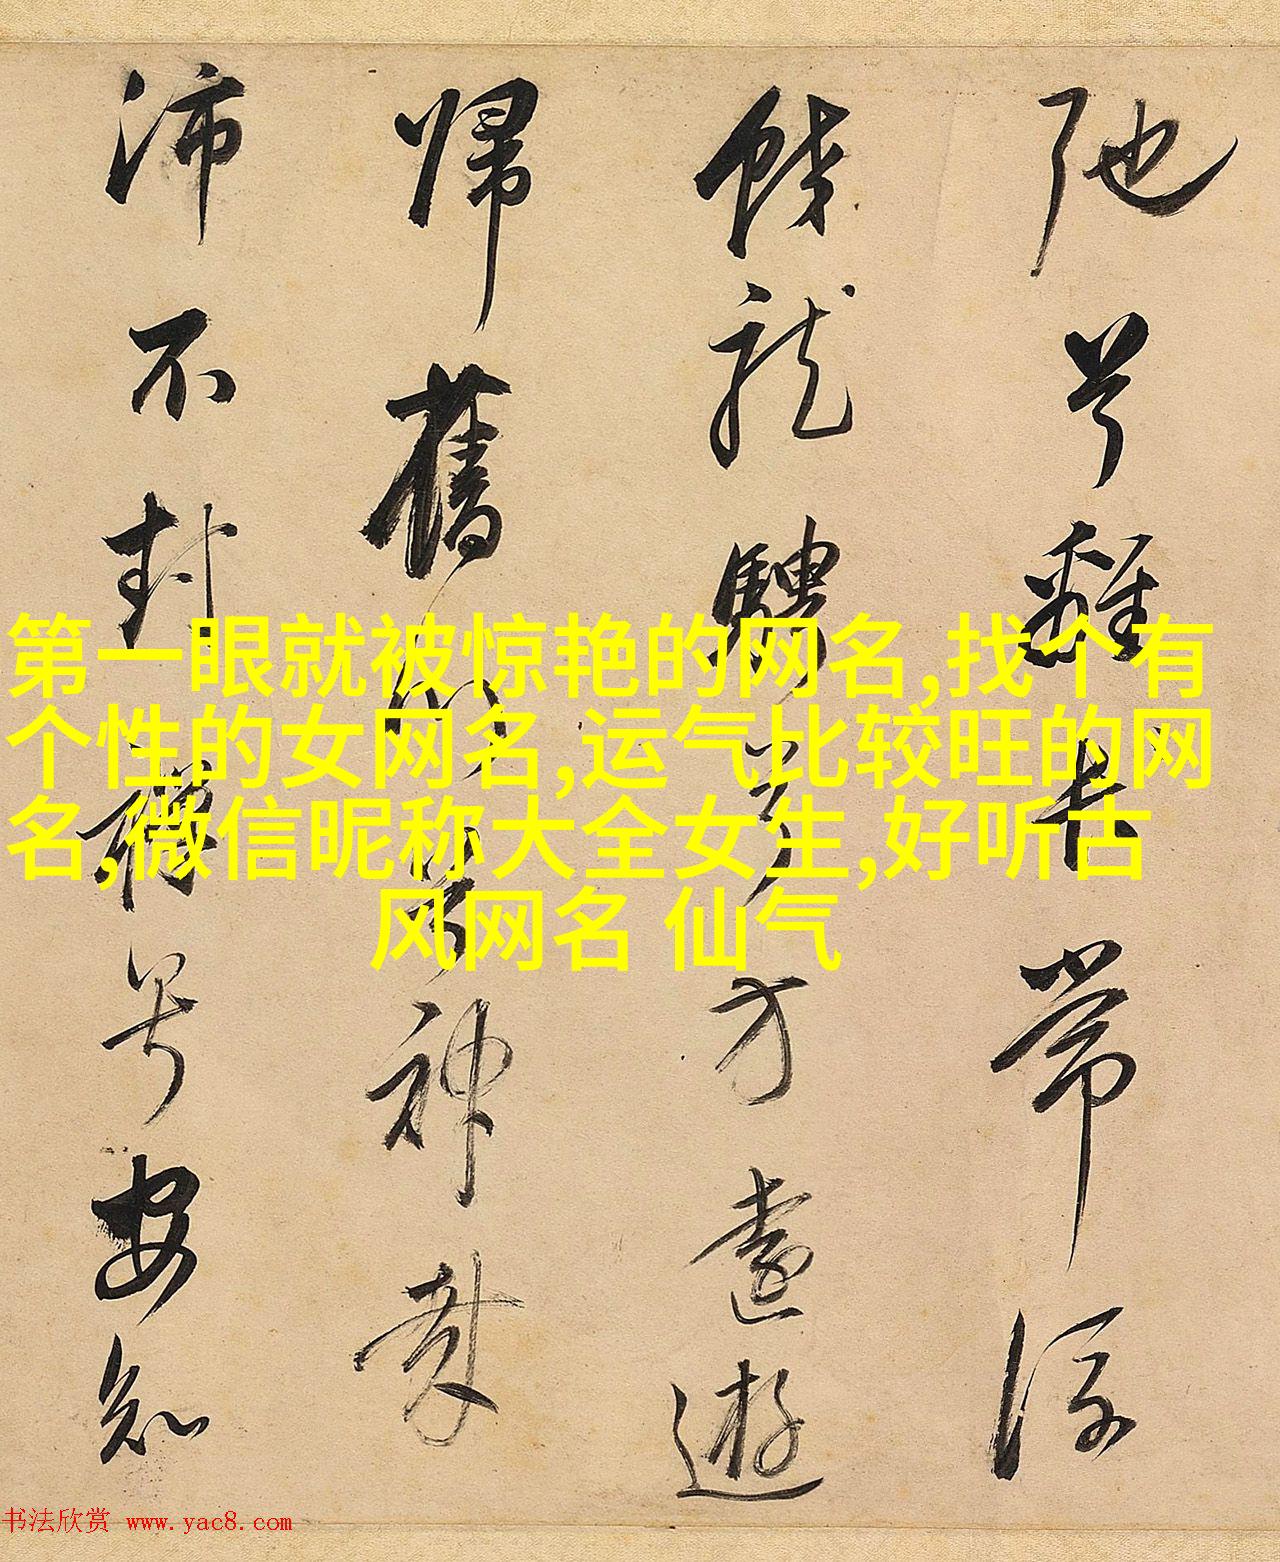 弛兮離長常流
蛟龍騁兮方遠遊
歸舊川兮神哉
沛不封禪兮安知
第一眼就被惊艳的网名,找个有
个性的女网名,运气比较旺的网
名,微信昵称大全女生,好听古
风网名 仙气
书法欣赏 www.yac8.com